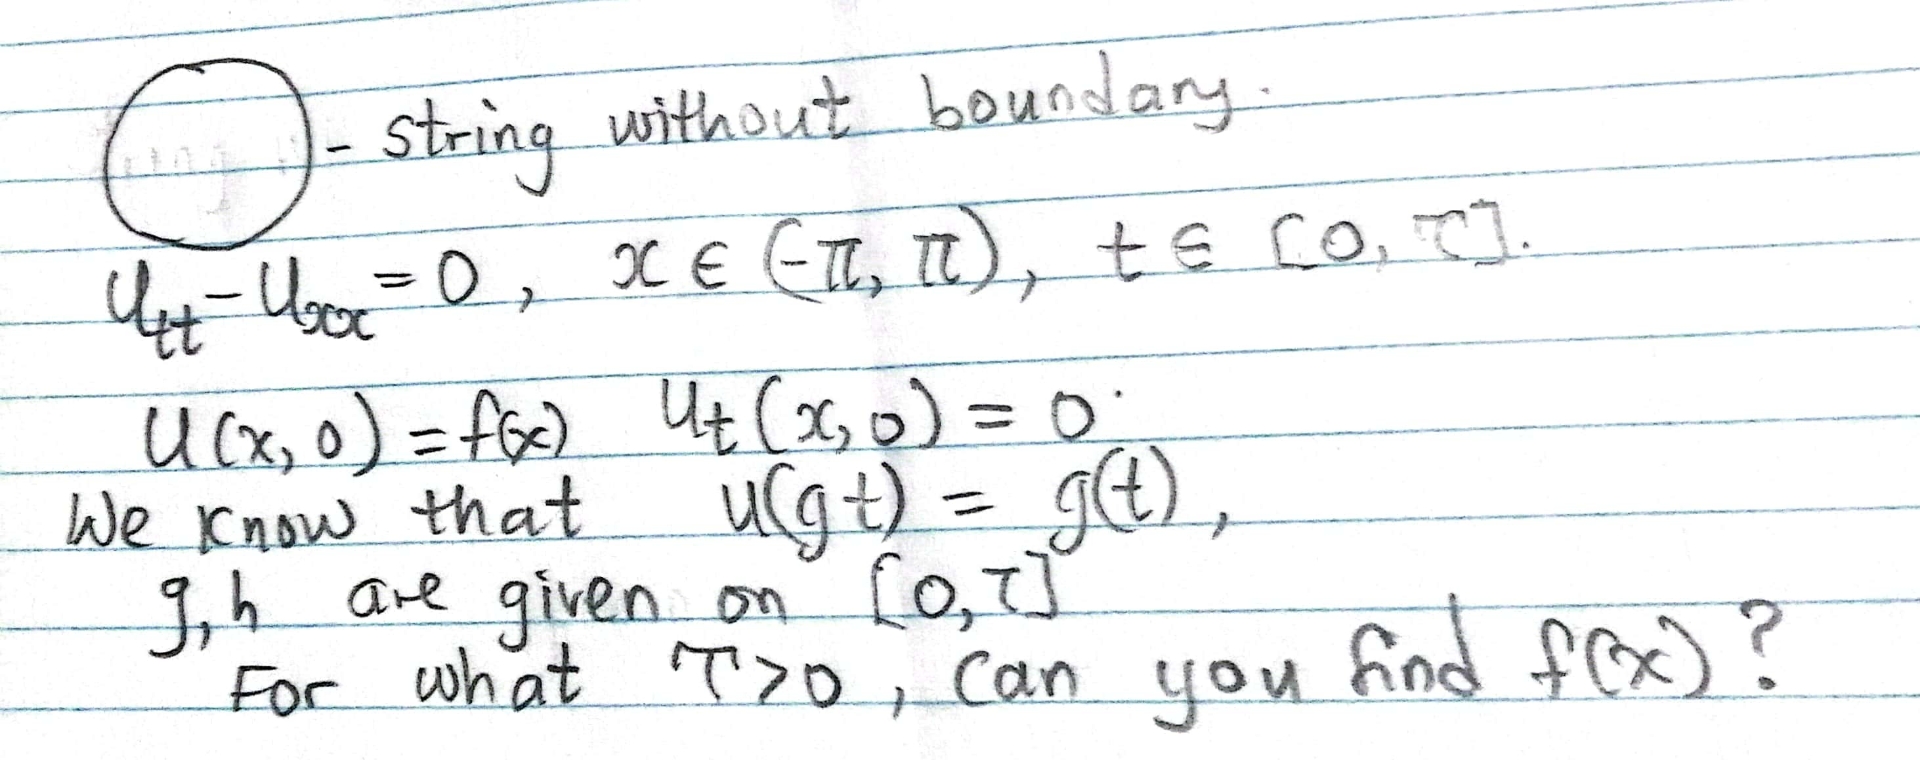 - string without boundary.
u_tt - u_xx = 0, x ∈ (-π, π), t ∈ [0, T].
u(x, 0) = f(x) u_t(x, 0) = 0.
We know that u(gt) = g(t),
g, h are given on [0, T]
For what T>0, can you find f(x)?